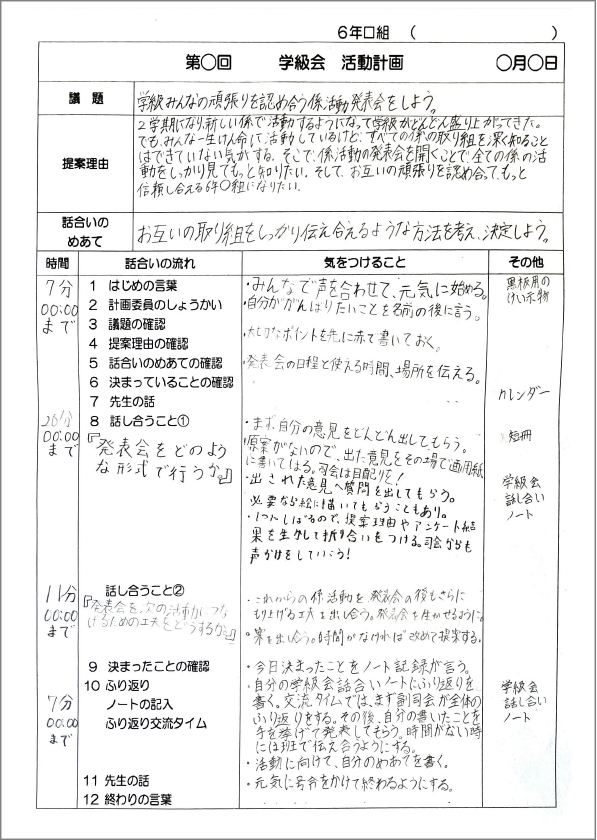 6年□組 ( )
第○回 学級会 活動計画 ○月○日
議題
学級みんなの頑張りを認め合う係活動発表会をしよう。
提案理由
2学期になり、新しい係で活動するようになって学級がどんどん盛り上がってきた。
でも、みんな一生けん命に活動しているけど、すべての係の取り組を深く知ること
はできていない気がする。そこで、係活動の発表会を開くことで、全ての係の活
動をしっかり見てもっと知りたい。そして、お互いの頑張りを認め合って、もっと
信頼し合える6年○組になりたい。
話合いの
めあて
お互いの取り組をしっかり伝え合えるような方法を考え、決定しよう。
時間 話合いの流れ 気をつけること その他
7分
00:00
まで
1 はじめの言葉
2 計画委員のしょうかい
3 議題の確認
4 提案理由の確認
5 話合いのめあての確認
6 決まっていることの確認
7 先生の話
・みんなで声を合わせて、元気に始める。
・自分ががんばりたいことを名前の後に言う。
・大切なポイントを先に赤で書いておく。
・発表会の日程と使える時間、場所を伝える。
黒板用の
けい示物
カレンダー
20分
00:00
まで
8 話し合うこと①
『発表会をどのよう
な形式で行うか。』
・まず、自分の意見をどんどん出してもらう。
原案がないので、出た意見をその場で画用紙
に書いてはる。司会は目配りを!
・出された意見へ質問を出してもらう。
必要なら絵に描いてもらうこともあり。
・1つにしぼるので、提案理由やアンケート結
果を生かして折り合いをつける。司会からも
声かけをしていこう!
短冊
学級会
話し合い
ノート
11分
00:00
まで
話し合うこと②
『発表会を次の活動につな
げるための工夫をどうするか。』
・これからの係活動を、発表会の後もさらに
もり上げる工夫を出し合う。発表会を生かせるように。
・案を出し合う。時間がなければ改めて提案する。
7分
00:00
まで
9 決まったことの確認
10 ふり返り
ノートの記入
ふり返り交流タイム
11 先生の話
12 終わりの言葉
・今日決まったことをノート記録が言う。
・自分の学級会話合いノートにふり返りを
書く。交流タイムでは、まず副司会が全体の
ふり返りをする。その後、自分の書いたことを
手を挙げて発表してもらう。時間がない時
には班で伝え合うようにする。
・活動に向けて、自分のめあてを書く。
・元気に号令をかけて終わるようにする。
学級会
話し合い
ノート